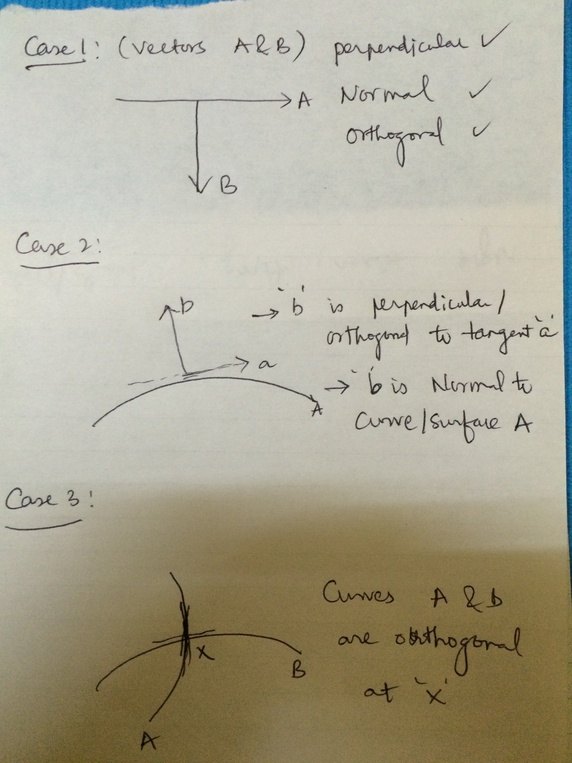 Case 1: (Vectors A&B) perpendicular ✓
A Normal ✓
Orthogonal ✓
B
Case 2:
b → `b' is perpendicular/
orthogonal to tangent `a'
a
→ `b is Normal to
A
Curve/Surface A
Case 3:
Curves A & b
are orthogonal
X
B
at `x'
A